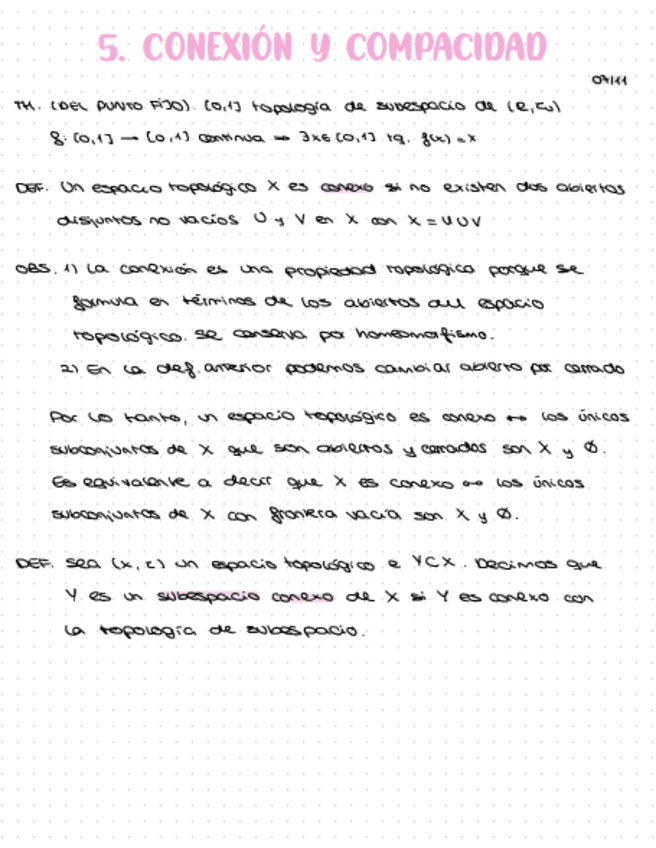 5. CONEXIÓN Y COMPACIDAD
07/11
TH. (DEL PUNTO FIJO). [0,1] topología de subespacio de (ℝ,τu)
f: [0,1] → [0,1] continua ⇒ ∃x∈[0,1] tq. f(x) = x
DEF. Un espacio topológico X es conexo si no existen dos abiertos
disjuntos no vacíos U y V en X con X = U∪V
OBS. 1) La conexión es una propiedad topológica porque se
formula en términos de los abiertos del espacio
topológico. Se conserva por homeomorfismo.
2) En la def. anterior podemos cambiar abierto por cerrado
Por lo tanto, un espacio topológico es conexo ↔ los únicos
subconjuntos de X que son abiertos y cerrados son X y Ø.
Es equivalente a decir que X es conexo ↔ los únicos
subconjuntos de X con frontera vacía son X y Ø.
DEF. Sea (X,τ) un espacio topológico e Y⊂X. Decimos que
Y es un subespacio conexo de X si Y es conexo con
la topología de subespacio.